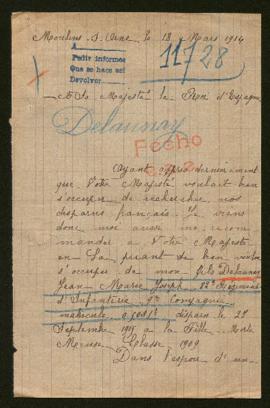 Moulins s. Orne le 18 Mars 1916
A
Pedir informes
Que se hace así
Devolver
11728
A Sa Majesté le Roi d'Espagne
Delaunay
Fecho
Ayant appris dernièrement
que Votre Majesté voulait bien
s'occuper de rechercher nos
disparus français. Je viens
donc moi aussi me recom
mander à Votre Majesté
en La priant de bien vouloir
s'occuper de mon fils Delaunay
Jean Marie Joseph Régiment
d'Infanterie Compagnie
matricule disparu le 29
Septembre 1915 à la Fille Morte
Meuse Classe 1909
Dans l'espoir d'un